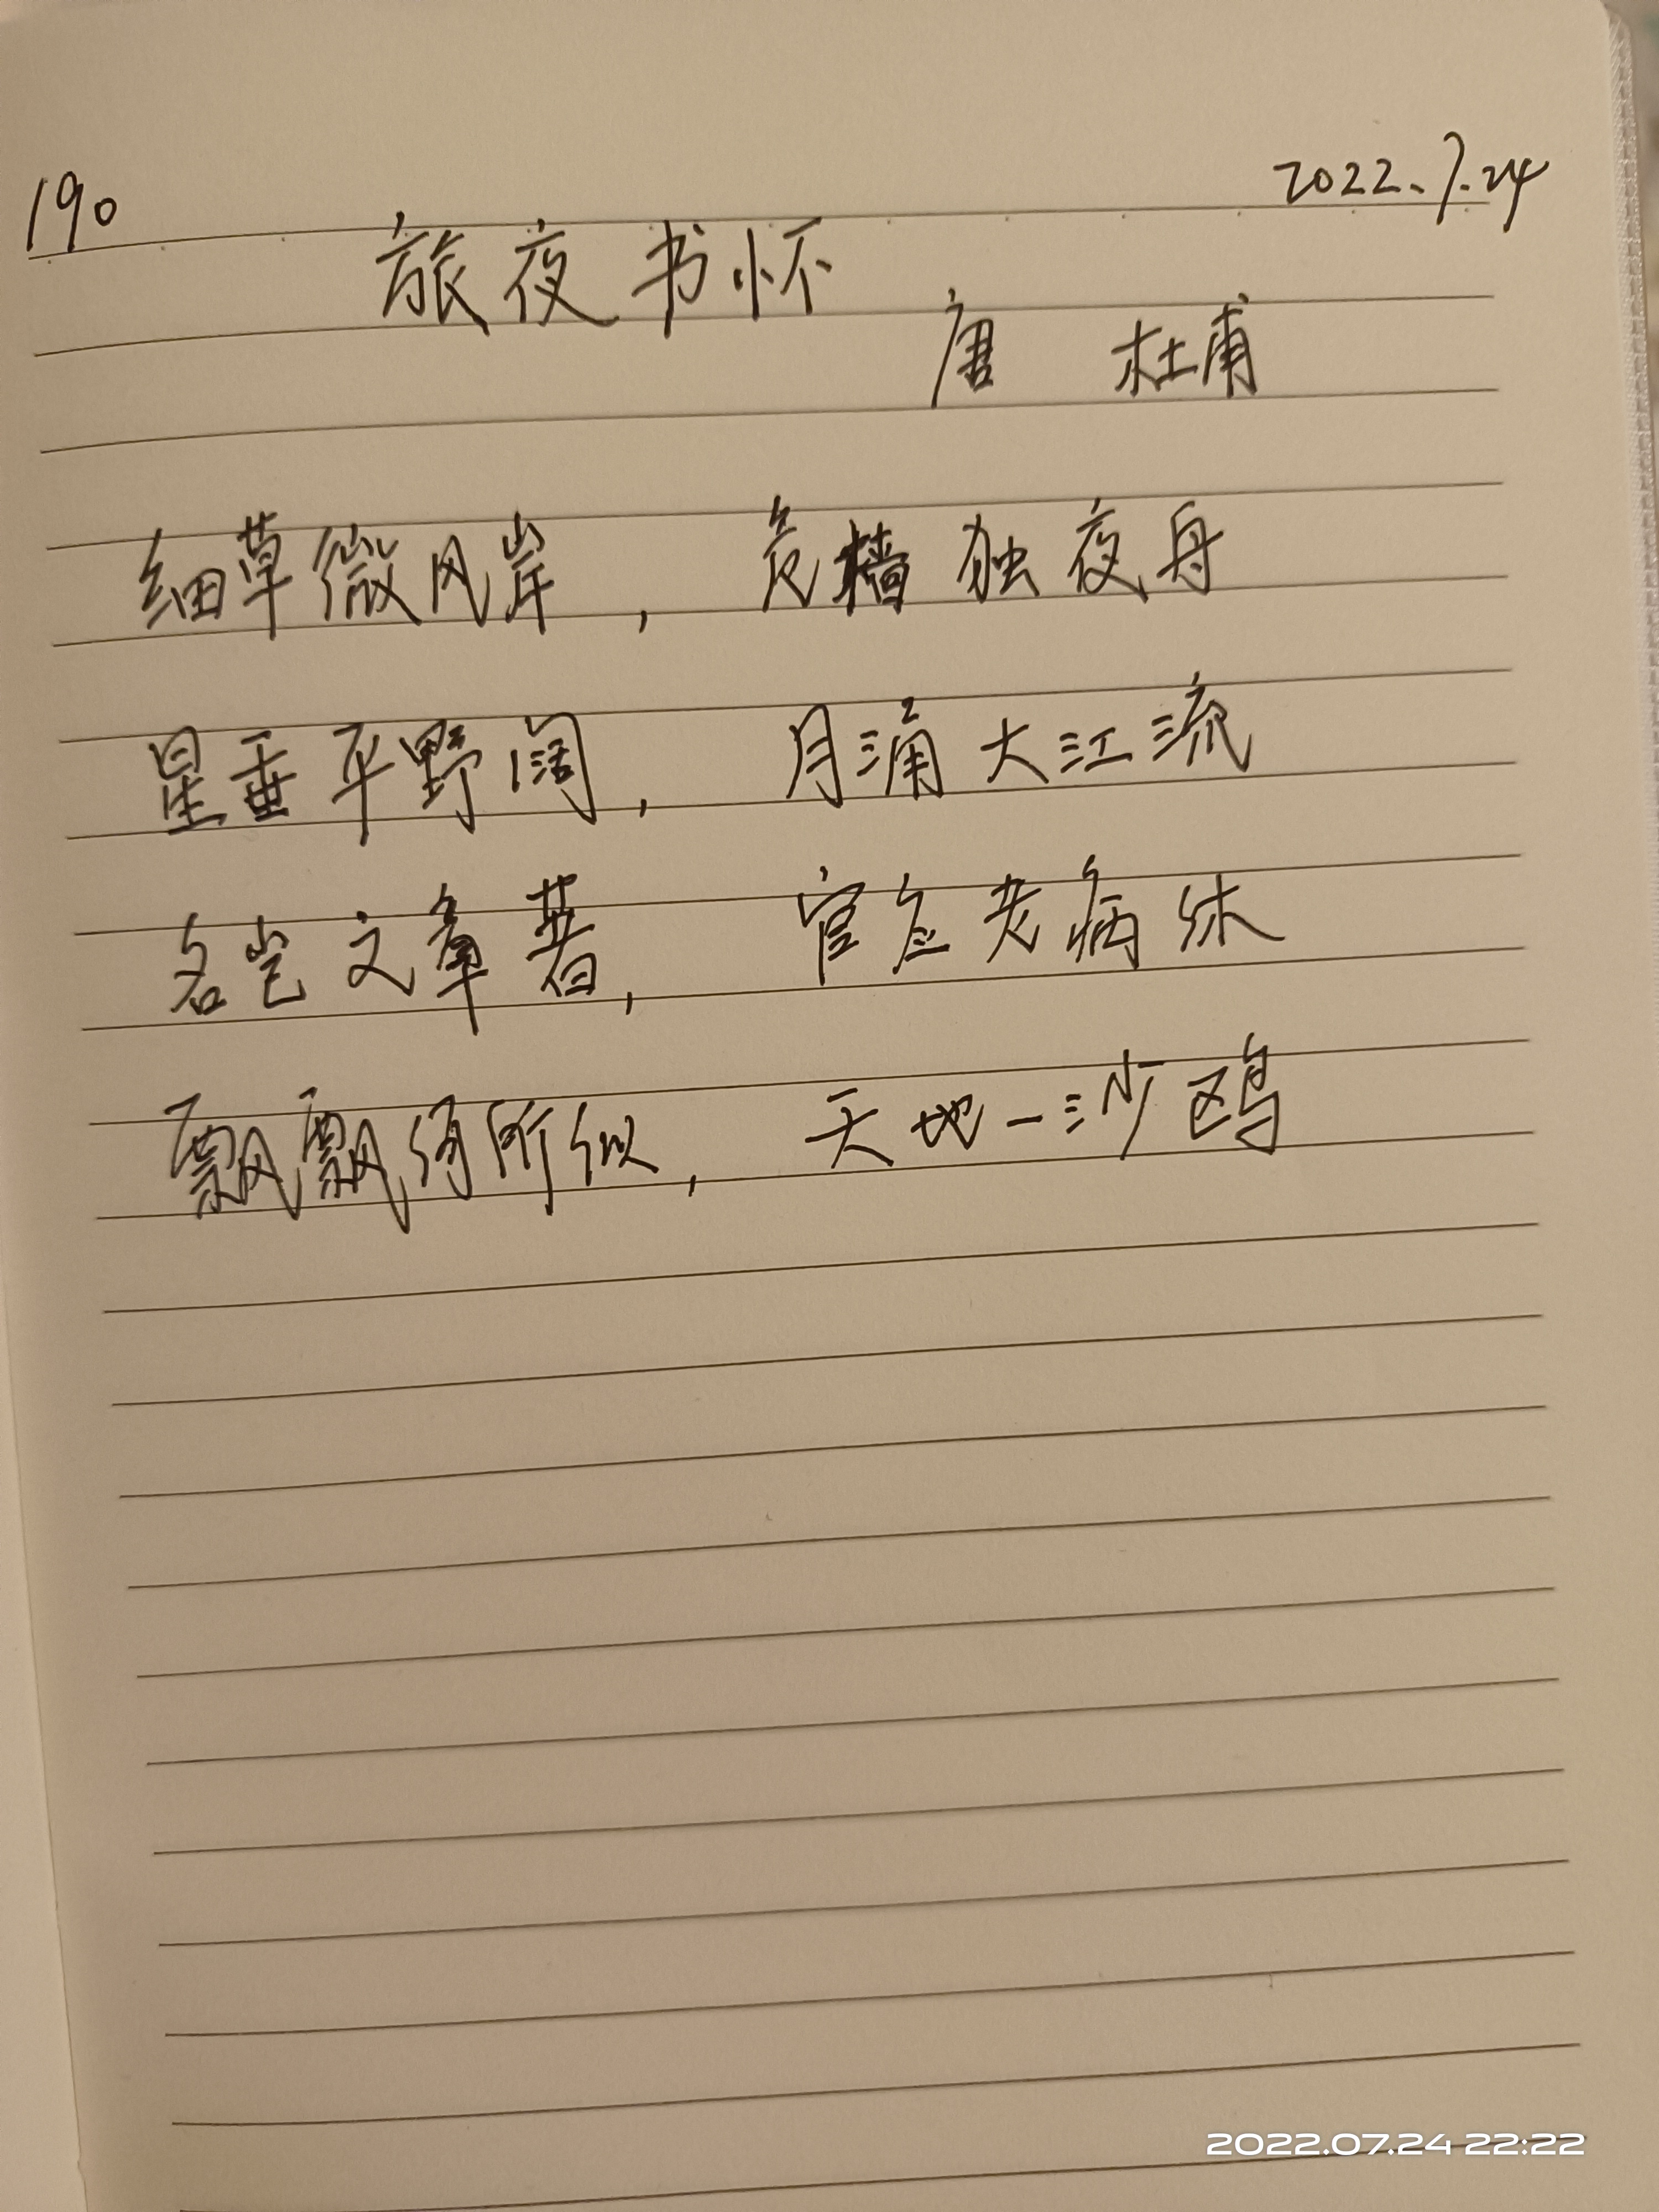 190
2022.7.24
旅夜书怀
唐 杜甫
细草微风岸， 危樯独夜舟
星垂平野阔， 月涌大江流
名岂文章著， 官应老病休
飘飘何所似， 天地一沙鸥
2022.07.24 22:22